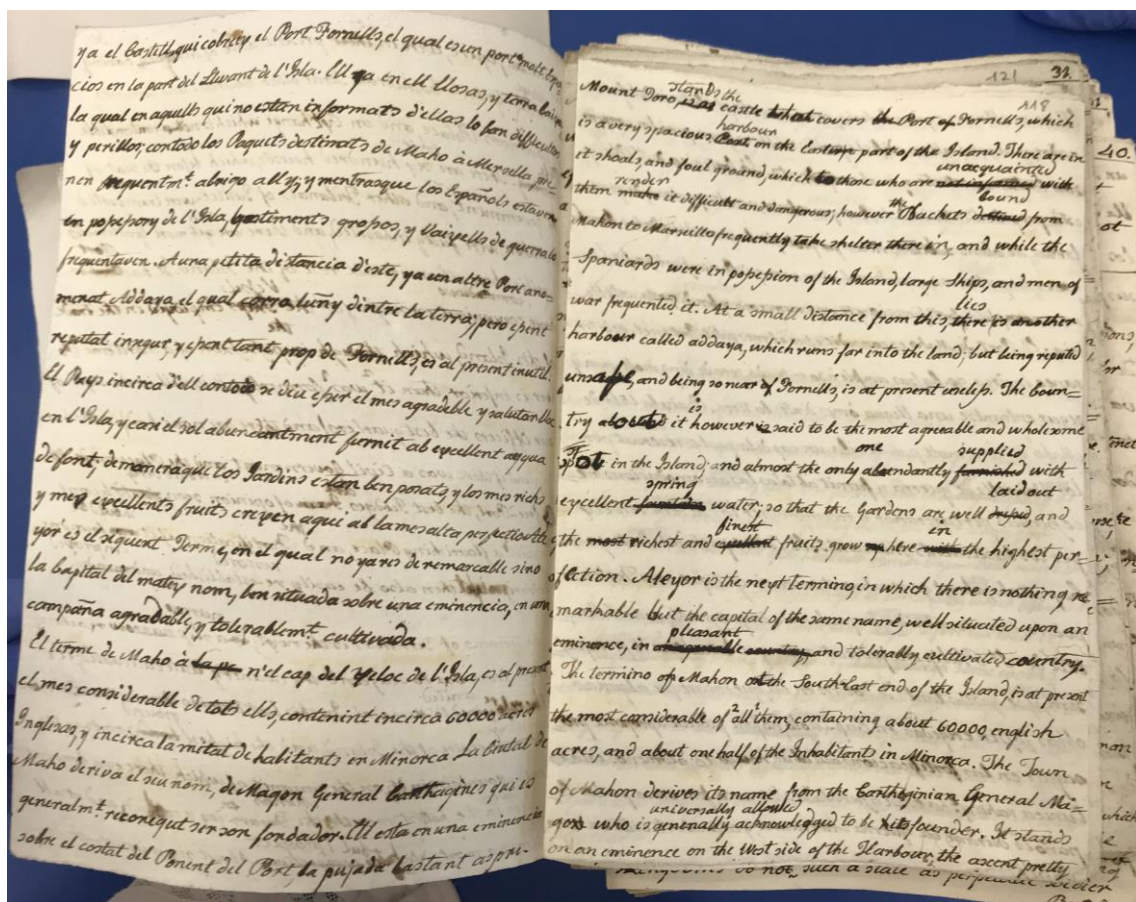 ya el Castell, qui cobreix el Port Fornells, el qual es un port molt
cios en la part del Llevant de l'Isla. Ell ya en ell llosas, y terra
la qual en aquells qui no estan informats d'ellas lo fan difficultos
y perillos; contodo los Paquets destinats de Maho à Mersella
nen frequentmt. abrigo ally; y mentrasque los Español estaven
en possessory de l'Isla, bastiments grossos, y Vaixells de guerra lo
frequentaven. A una petita distancia d'este, ya un altre Port ano=
menat Addaya, el qual corra luñy dintre la terra; pero essent
reputat insegur, y essent tant prop de Fornells, es al present inutil.
El Pays incirca d'ell contodo se diu esser el mes agradable y salutan
en l'Isla, y cari el sol abundantment furnit ab excellent aygua
de font; de manera que los Jardins estan ben posats, y los mes richs
y mes excellents fruits crexen aqui ab la mes alta perfectio.
yor es el siquent Terme, en el qual no ya res de remarcable sino
la Capital del matex nom, ben situada sobre una eminencia, en una
campaña agradable, y tolerablemt. cultivada.
El terme de Maho à la pe n'el cap del Xeloc de l'Isla, es al present
el mes considerable de tots ells, contenint incirca 60000 acres
Inglesas, y incirca la mitat de habitants en Minorca La Ciutat de
Maho deriva el seu nom, de Magon General Carthagines qui es
generalmt. reconegut ser son fondador. Ell esta en una eminencia
sobre el costat del Ponent del Port, la pujada bastant aspri-
121 31.
118
stands the
Mount Toro, is a castle that covers the Port of Fornells, which
harbour
is a very spacious Port, on the Eastern part of the Island. There are in
unacquainted
it shoals, and foul ground, which to those who are not informed with
render the bound
them make it difficult and dangerous; however Packets destined from
Mahon to Marseills frequently take shelter there in, and while the
Spaniards were in possession of the Island, large Ships, and men of
lies
war frequented it. At a small distance from this, there is another
harbour called addaya, which runs far into the land; but being reputed
unsafe, and being so near of Fornells, is at present useless. The Coun=
is
try about it however is said to be the most agreeable and wholesome
one supplied
spot in the Island; and almost the only abundantly furnished with
spring laid out
excellent fountain water; so that the Gardens are well and
finest in
the most richest and excellent fruits grow here with the highest per=
fection. Aleyor is the next termino, in which there is nothing re
markable but the capital of the same name, well situated upon an
pleasant
eminence, in an agreeable country, and tolerably cultivated country.
The termino of Mahon at the South-East end of the Island, is at present
the most considerable of ²all ¹them, containing about 60000 english
acres, and about one half of the Inhabitants in Minorca. The Town
of Mahon derives its name from the Carthaginian General Ma=
universally allowed
gon who is generally acknowledged to be its founder. It stands
on an eminence on the West side of the Harbour, the ascent pretty
40.
ot
not, such a state as perpetual